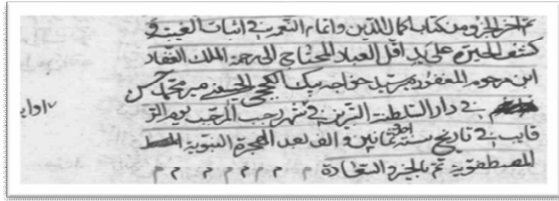 تم آخر الجزو من كتاب كمال الدين و اتمام النعمة في اثبات الغيبت و
كشف الحيرة على يد اقل العباد المحتاج الى رحمة الملك الغفار
ابن مرحوم المغفور خواجه بيك
في دار السلطنة التبريز في شهر رجب المرجب يوم
في تاريخ سنة ثمانين و الف بعد الهجرة النبوية
المصطفوية تم بالخير و السعادة م م م م م م